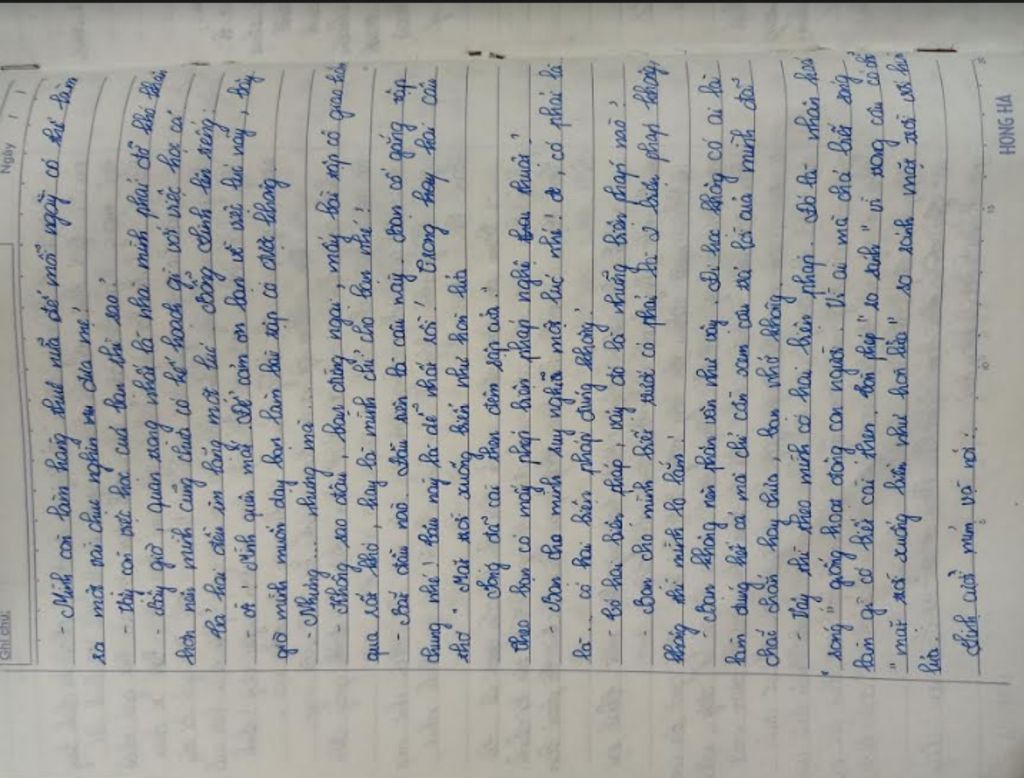 Ghi chú:
Ngày
- Mình còn làm hàng thuê nữa đó mỗi ngày có thể làm
ra mới vài chục nghìn cơ mà!
- Vậy còn việc học của bạn thì sao?
- Bây giờ, quan trọng nhất là nhà mình phải đỡ khó khăn
hơn nên mình cũng chưa có kế hoạch gì với việc học cả
Cả hai đều im lặng một lúc. Bỗng Linh lên tiếng
- À! Mình quên mất. Để cảm ơn bạn về việc lúc nãy, bây
giờ mình muốn dạy bạn làm bài tập có được không
- Nhưng ...... nhưng mà .......
- Không sao đâu, bạn đừng ngại, mấy bài tập cô giao hôm
qua rất khó, hay là mình chỉ cho bạn nhé!
- Bắt đầu nào. Đầu tiên là câu này. Bạn cố gắng tập
trung nhé! Câu này là dễ nhất rồi! Trong hay hai câu
thơ: Mặt trời xuống biển như hòn lửa
Sóng đã cài then đêm sập cửa."
Theo bạn có mấy pháp biện pháp nghệ thuật?
- Bạn cho mình suy nghĩ một lúc nhé! À, có phải là
là... có hai biện pháp đúng không?
- Có hai biện pháp, vậy đó là những biện pháp nào?
- Bạn cho mình biết trước có phải là 2 biện pháp không,
không thì mình lo lắm!
- Bạn không nên phân vân như vậy. Đi học không có ai là
làm đúng hết cả mà chỉ cần xem câu trả lời của mình đã
chắc chắn hay chưa, bạn nhớ không
- Vậy thì theo mình có hai biện pháp. Đó là nhân hoá
"sóng" giống hoạt động con người. Vì ai mà chả biết sóng
làm gì có biết cài then. biện pháp "so sánh" vì trong câu có từ
"mặt trời xuống biển như hòn lửa" so sánh mặt trời với hòn
lửa.
Linh cười mỉm và nói:
HONG HA